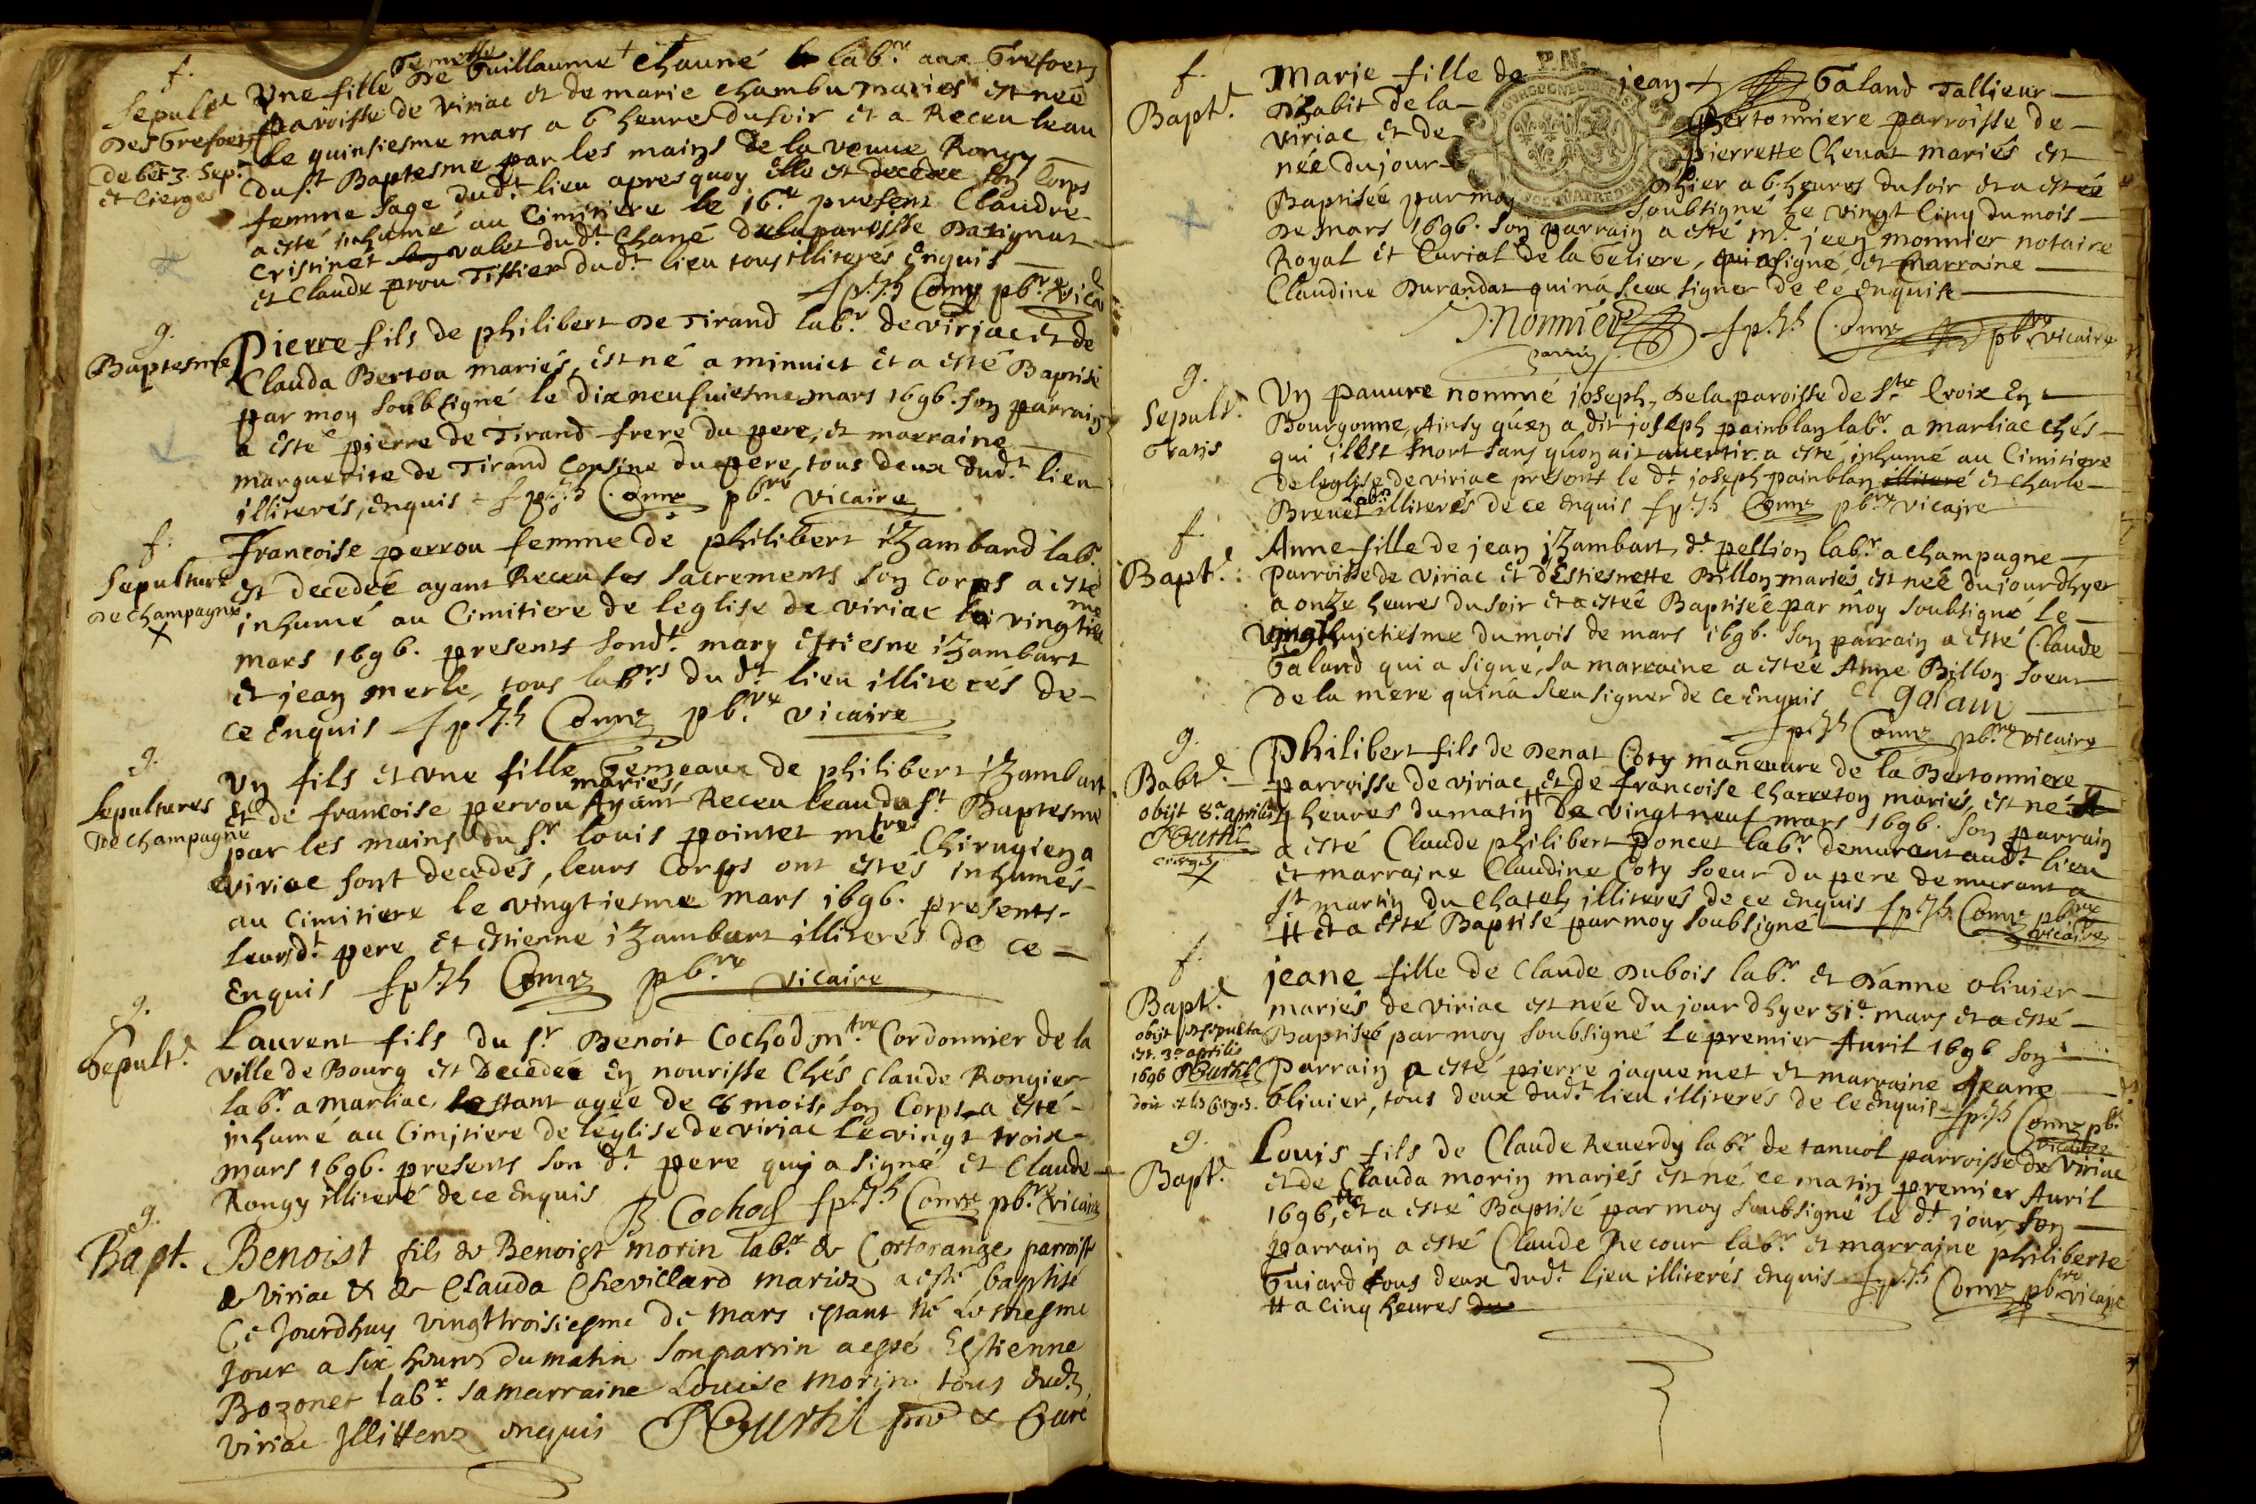 f.
Sepult.e
des Grefoers
debet 3. Sep.
et cierges
Gemelle
Une fille de Guillaume + chauné lab.r aux Grefoers
parroisse de Viriac et de marie chambu mariés est née
le quinsiesme mars a 6 heures du soir et a Receu leau
du s.t Baptesme par les mains de la veuve Rongy
femme sage dud.t lieu apres quoy elle est decedée son Corps
a esté inhumé au Cimitiere le 16.e present Claudre
Cristinet valet dud.t Chané de la paroisse Datignat
et Claude prou Tissier dud.t lieu tous illiterés Enquis
pb.re vica
g.
Baptesme
Pierre fils de philibert De Tirand lab.r de viriac et de
Clauda Bertou mariés, est né a minuict et a esté Baptisé
par moy soubsigné le dixneufviesme mars 1696. son parrain
a esté pierre de Tirand frere du pere, et marraine
marguerite de Tirand Cousine du pere, tous deux dud.t lieu
illiterés, enquis pb.re vicaire
f.
Sepulture
de champagne
x
Francoise perrou femme de philibert iZambard lab.r
est decedée ayant Receu les sacrements son Corps a esté
inhumé au Cimitiere de leglise de viriac le vingtie me
mars 1696. presents sond.t mary Estiesne iZambart
et jean merle, tous lab.rs dud.t lieu illiterés de
ce enquis pb.re vicaire
g.
Sepultures
de champagne
Un fils et une fille Gemeaux de philibert iZambart
et de francoise perrou mariés, Ayant Receu leau du s.t Baptesme
par les mains du s.r louis pointet m.tre Chirugien a
viriac sont decedés, leurs Corps ont estés inhumés
au cimitiere le vingtiesme mars 1696. presents
leurd.t pere et estienne iZambart illiterés de ce
enquis pb.re vicaire
g.
Sepult.e
Laurent fils du s.r Benoit Cochod m.tre Cordonnier de la
ville de Bourg est Decedée en nourisse Chés Claude Rongier
lab.r a marliac, estant agée de 8 mois, son Corps a esté
inhumé au Cimitiere de léglise de viriac le vingt trois
mars 1696. presents son d.t pere qui a signé et Claude
Rongy illiteré de ce enquis
B Cochod pb.re vicaire
g.
Bapt.
Benoist fils de Benoist morin lab.r de Cortorange parroisse
de viriac & de Clauda Chevillard mariez a esté baptisé
Ce Jourdhuy vingttroisiesme de Mars estant né le mesme
Jour a six heures du matin son parrin a esté Estienne
Bozonet lab.r sa marraine Louise Morin tous dud.
viriac Illitterez enquis & Curé
f.
Bapt.e
Marie fille de jean + Galand Tallieur
Dhabit de la Bertonniere parroisse de
viriac et de pierrette Chevat mariés est
née du jour Dhier a 6. heures du soir et a estée
Baptisée par moy soubsigné le vingt Cinq du mois
de mars 1696. son parrain a esté m.e jean monnier notaire
Royal et Curial de la Geliere, qui a signé, et marraine
Claudine Durandat qui n'a sceu signer de ce Enquise
Monnier
parrin
pb.re vicaire
g.
Sepult.e
Gratis
Un pauvre nommé joseph, de la paroisse de s.te Croix En
Bourgonne, Ainsy qu'en a dit joseph painblan lab.r a marliac chés
qui il est mort sans qu'on ait avertir. a esté inhumé au Cimitiere
de leglise de viriac presents le d.t joseph painblan illiteré et Charle
Brevet lab.r illiterés de ce enquis pb.re vicaire
f.
Bapt.e
Anne fille de jean iZambart, d.t pellion lab.r a champagne
parroisse de viriac et d'Estiesnette Billon mariés est née du jour dhyer
a onZe heures du soir et a estée Baptisée par moy soubsigné le
vingthuictiesme du mois de mars 1696. son parrain a esté Claude
Galand qui a signé, sa marraine a estée Anne Billon soeur
de la mere qui n'a sceu signer de ce enquis C galam
pb.re vicaire
g.
Babt.e
obijt 8.a aprilis
cierges
x
Philibert fils de Denat Coty maneuvre de la Bertonniere
parroisse de viriac et de francoise Charreton mariés, est né a
7 heures du matin # le vingt neuf mars 1696. son parrain
a esté Claude philibert poncet lab.r demurant aud.t lieu
et marraine Claudine Coty soeur du pere demurant a
s.t martin du Chatel, illiterés de ce enquis pb.re
# et a esté Baptisé par moy soubsigné vicaire
f.
Bapt.e
obijt et sepulta
est. 3.a aprilis
1696
doit et les cierges.
jeane fille de Claude Dubois lab.r et D'anne olivier
mariés de viriac est née du jour dhyer 31.e mars et a esté
Baptiseé par moy soubsigné le premier Avril 1696 son
parrain a esté pierre jaquemet et marraine Jeanne
Olivier, tous deux dud.t lieu illiterés de ce enquis pb.re
vicaire
g.
Bapt.e
Louis fils de Claude Reverdy lab.r de tanvol parroisse de viriac
et de Clauda morin mariés est né ce matin premier Avril
1696, # et a esté Baptisé par moy soubsigné le d.t jour son
parrain a esté Claude Recour lab.r et marraine philiberte
Guiard tous deux dud.t lieu illiterés enquis pb.re vicaire
# a cinq heures du